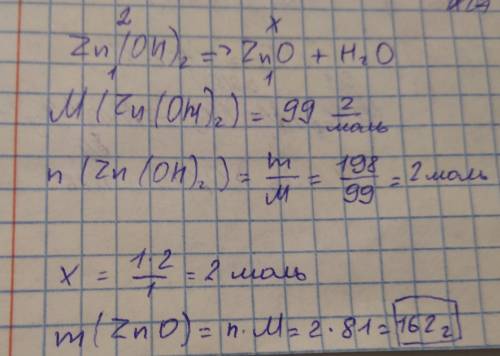 2 x
Zn(OH)₂ => ZnO + H₂O
1 1
M(Zn(OH)₂) = 99 г/моль
n(Zn(OH)₂) = m/M = 198/99 = 2 моль
x = 1·2/1 = 2 моль
m(ZnO) = n·M = 2·81 = 162 г